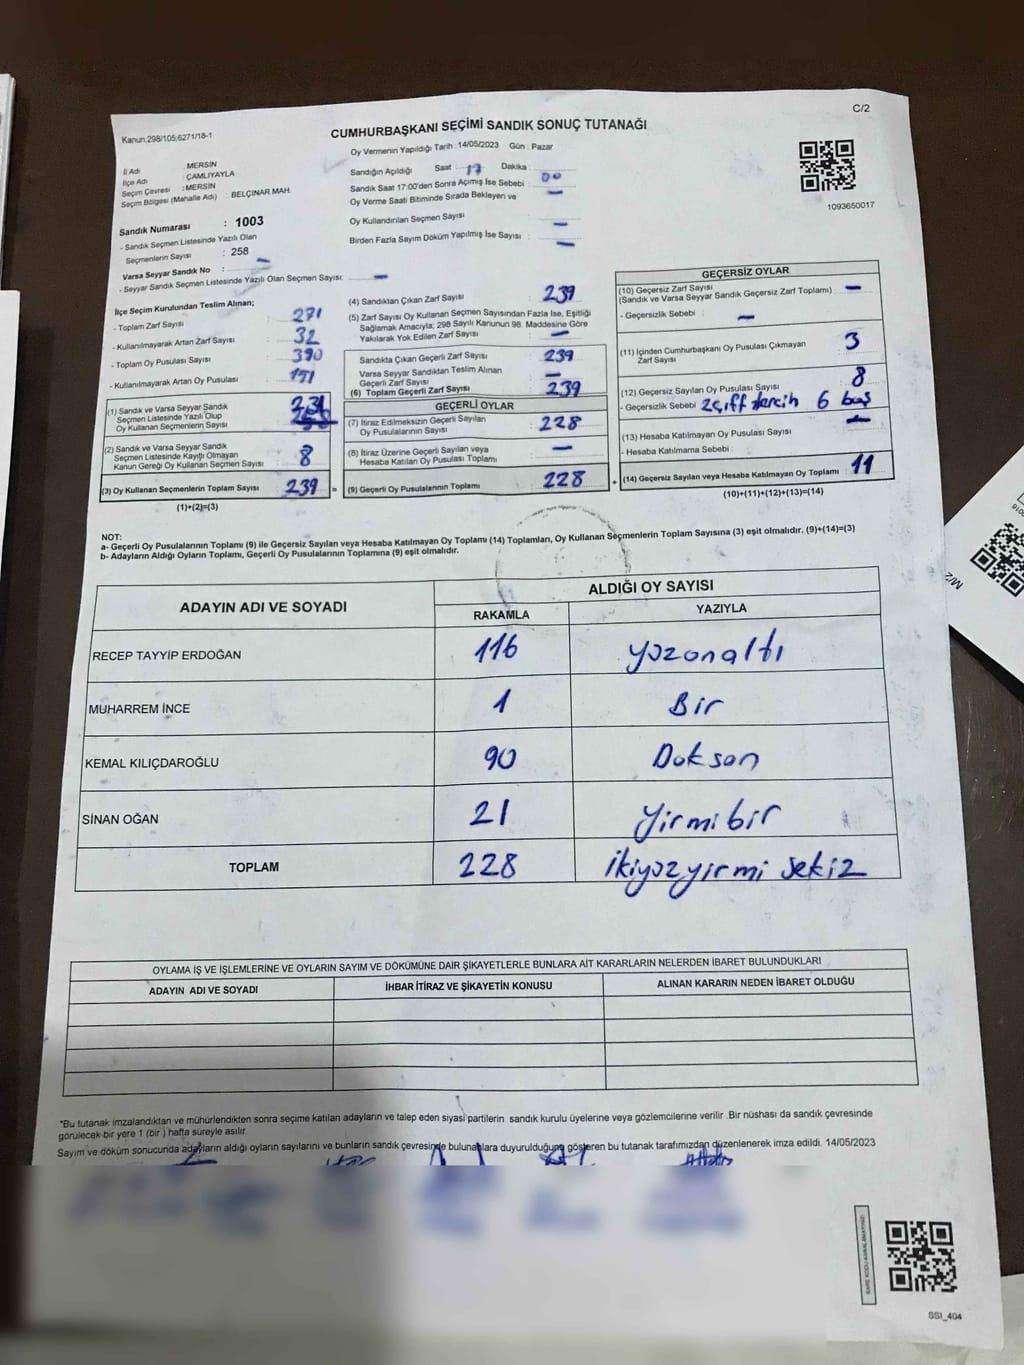 C/2
Kanun.298/105;6271/18-1
CUMHURBAŞKANI SEÇİMİ SANDIK SONUÇ TUTANAĞI
Oy Vermenin Yapıldığı Tarih : 14/05/2023 Gün : Pazar
İl Adı : MERSİN
İlçe Adı : ÇAMLIYAYLA
Seçim Çevresi : MERSİN
Seçim Bölgesi (Mahalle Adı) : BELÇINAR MAH.
Sandık Numarası : 1003
- Sandık Seçmen Listesinde Yazılı Olan
Seçmenlerin Sayısı : 258
Varsa Seyyar Sandık No : —
- Seyyar Sandık Seçmen Listesinde Yazılı Olan Seçmen Sayısı: —
Sandığın Açıldığı Saat : 17 Dakika : 00
Sandık Saat 17:00'den Sonra Açımış İse Sebebi : —
Oy Verme Saati Bitiminde Sırada Bekleyen ve
Oy Kullandırılan Seçmen Sayısı : —
Birden Fazla Sayım Döküm Yapılmış İse Sayısı : —
1093650017
İlçe Seçim Kurulundan Teslim Alınan;
- Toplam Zarf Sayısı : 271
- Kullanılmayarak Artan Zarf Sayısı : 32
- Toplam Oy Pusulası Sayısı : 390
- Kullanılmayarak Artan Oy Pusulası : 151
(1) Sandık ve Varsa Seyyar Sandık
Seçmen Listesinde Yazılı Olup
Oy Kullanan Seçmenlerin Sayısı 231
(2) Sandık ve Varsa Seyyar Sandık
Seçmen Listesinde Kayıtlı Olmayan
Kanun Gereği Oy Kullanan Seçmen Sayısı 8
(3) Oy Kullanan Seçmenlerin Toplam Sayısı 239 =
(1)+(2)=(3)
(4) Sandıktan Çıkan Zarf Sayısı 239
(5) Zarf Sayısı Oy Kullanan Seçmen Sayısından Fazla İse, Eşitliği
Sağlamak Amacıyla; 298 Sayılı Kanunun 98. Maddesine Göre
Yakılarak Yok Edilen Zarf Sayısı —
Sandıkta Çıkan Geçerli Zarf Sayısı 239
Varsa Seyyar Sandıktan Teslim Alınan
Geçerli Zarf Sayısı —
(6) Toplam Geçerli Zarf Sayısı 239
GEÇERLİ OYLAR
(7) İtiraz Edilmeksizin Geçerli Sayılan
Oy Pusulalarının Sayısı 228
(8) İtiraz Üzerine Geçerli Sayılan veya
Hesaba Katılan Oy Pusulası Toplamı —
(9) Geçerli Oy Pusulalarının Toplamı 228 +
GEÇERSİZ OYLAR
(10) Geçersiz Zarf Sayısı
(Sandık ve Varsa Seyyar Sandık Geçersiz Zarf Toplamı) —
- Geçersizlik Sebebi : —
(11) İçinden Cumhurbaşkanı Oy Pusulası Çıkmayan
Zarf Sayısı 3
(12) Geçersiz Sayılan Oy Pusulası Sayısı 8
- Geçersizlik Sebebi 2 çiff tercih 6 boş
(13) Hesaba Katılmayan Oy Pusulası Sayısı —
- Hesaba Katılmama Sebebi :
(14) Geçersiz Sayılan veya Hesaba Katılmayan Oy Toplamı 11
(10)+(11)+(12)+(13)=(14)
NOT:
a- Geçerli Oy Pusulalarının Toplamı (9) ile Geçersiz Sayılan veya Hesaba Katılmayan Oy Toplamı (14) Toplamları, Oy Kullanan Seçmenlerin Toplam Sayısına (3) eşit olmalıdır. (9)+(14)=(3)
b- Adayların Aldığı Oyların Toplamı, Geçerli Oy Pusulalarının Toplamına (9) eşit olmalıdır.
ADAYIN ADI VE SOYADI
ALDIĞI OY SAYISI
RAKAMLA YAZIYLA
RECEP TAYYİP ERDOĞAN 116 yüzonaltı
MUHARREM İNCE 1 Bir
KEMAL KILIÇDAROĞLU 90 Doksan
SİNAN OĞAN 21 Yirmibir
TOPLAM 228 ikiyüzyirmi sekiz
OYLAMA İŞ VE İŞLEMLERİNE VE OYLARIN SAYIM VE DÖKÜMÜNE DAİR ŞİKAYETLERLE BUNLARA AİT KARARLARIN NELERDEN İBARET BULUNDUKLARI
ADAYIN ADI VE SOYADI İHBAR İTİRAZ VE ŞİKAYETİN KONUSU ALINAN KARARIN NEDEN İBARET OLDUĞU
*Bu tutanak imzalandıktan ve mühürlendikten sonra seçime katılan adayların ve talep eden siyasi partilerin sandık kurulu üyelerine veya gözlemcilerine verilir .Bir nüshası da sandık çevresinde
görülecek bir yere 1 (bir ) hafta süreyle asılır.
Sayım ve döküm sonucunda adayların aldığı oyların sayılarını ve bunların sandık çevresinde bulunanlara duyurulduğunu gösteren bu tutanak tarafımızdan düzenlenerek imza edildi. 14/05/2023
SSİ_404
M/2